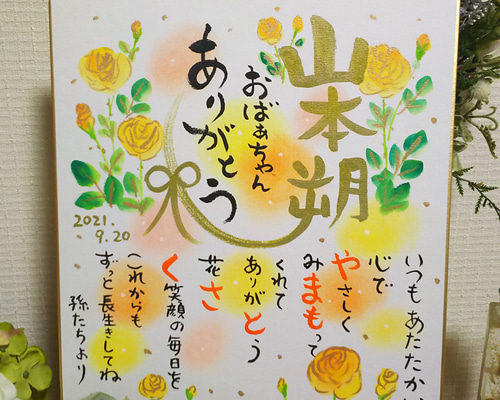 山本朔
おばぁちゃん
ありがとう
2021.
9.20
いつもあたたかい
心で
やさしく
みまもって
くれて
ありがとう
花さ
く笑顔の毎日を
これからも
ずっと長生きしてね
孫たちより